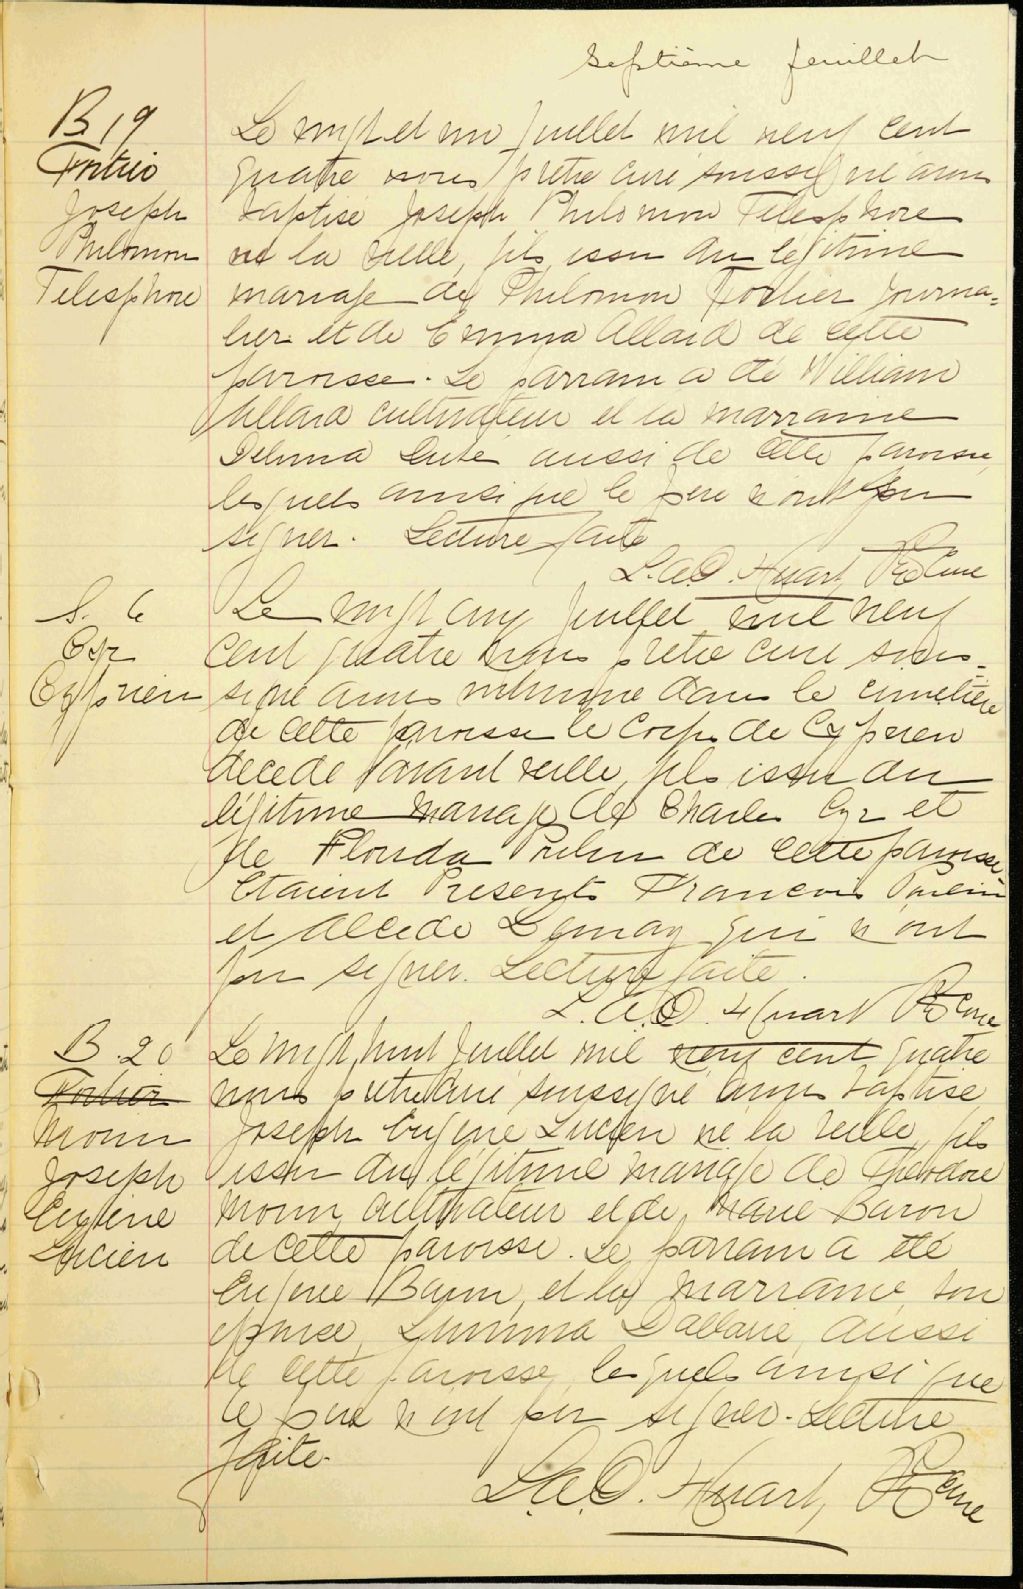 Septième feuillet
B 19
Fortier
Joseph
Philemon
Telesphore
Le vingt et un Juillet mil neuf cent
quatre nous prêtre curé soussigné avons
baptisé Joseph Philemon Telesphore
né la veille, fils issu du légitime
mariage de Philemon Fortier journa=
lier et de Emma Allard de cette
paroisse. Le parrain a été William
Allard cultivateur et la marraine
Delima aussi de cette paroisse,
lesquels ainsi que le père n'ont pu
signer. Lecture faite
L.A.O. Huart, Ptre Curé
S. 6
Cyr
Cyprien
Le vingt cinq Juillet mil neuf
cent quatre nous prêtre curé sous-
signé avons inhumé dans le cimetière
de cette paroisse le corps de Cyprien
décédé l'avant veille, fils issu du
légitime mariage de Charles Cyr et
de Florida Poulin de cette paroisse.
Etaient Présents Francois Poulin
et Alcede Lemay qui n'ont
pu signer. Lecture faite.
L.A.O. Huart Ptre Curé
B 20
Fortier
Morin
Joseph
Eugène
Lucien
Le vingt huit Juillet mil neuf cent quatre
nous prêtre curé soussigné avons baptisé
Joseph Eugène Lucien né la veille, fils
issu du légitime mariage de Theodore
Morin, cultivateur et de Marie Baron
de cette paroisse. Le parrain a été
Eugène Baron, et la marraine, son
épouse, Dallaire, aussi
de cette paroisse, lesquels ainsi que
le père n'ont pu signer. Lecture
faite.
L.A.O. Huart, Ptre Curé